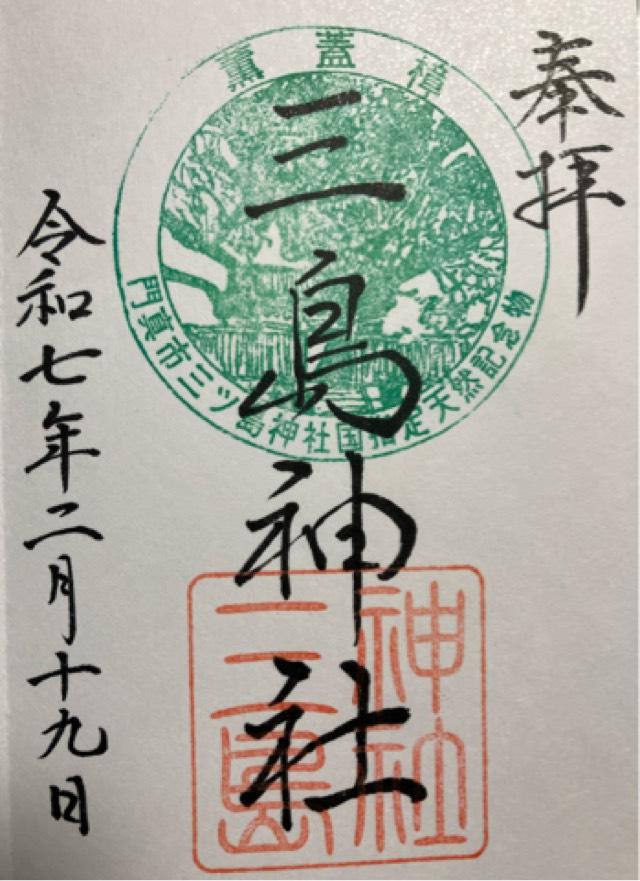 奉拝
薫蓋樟
門真市三ツ島神社国指定天然記念物
三島神社
三島神社
令和七年二月十九日